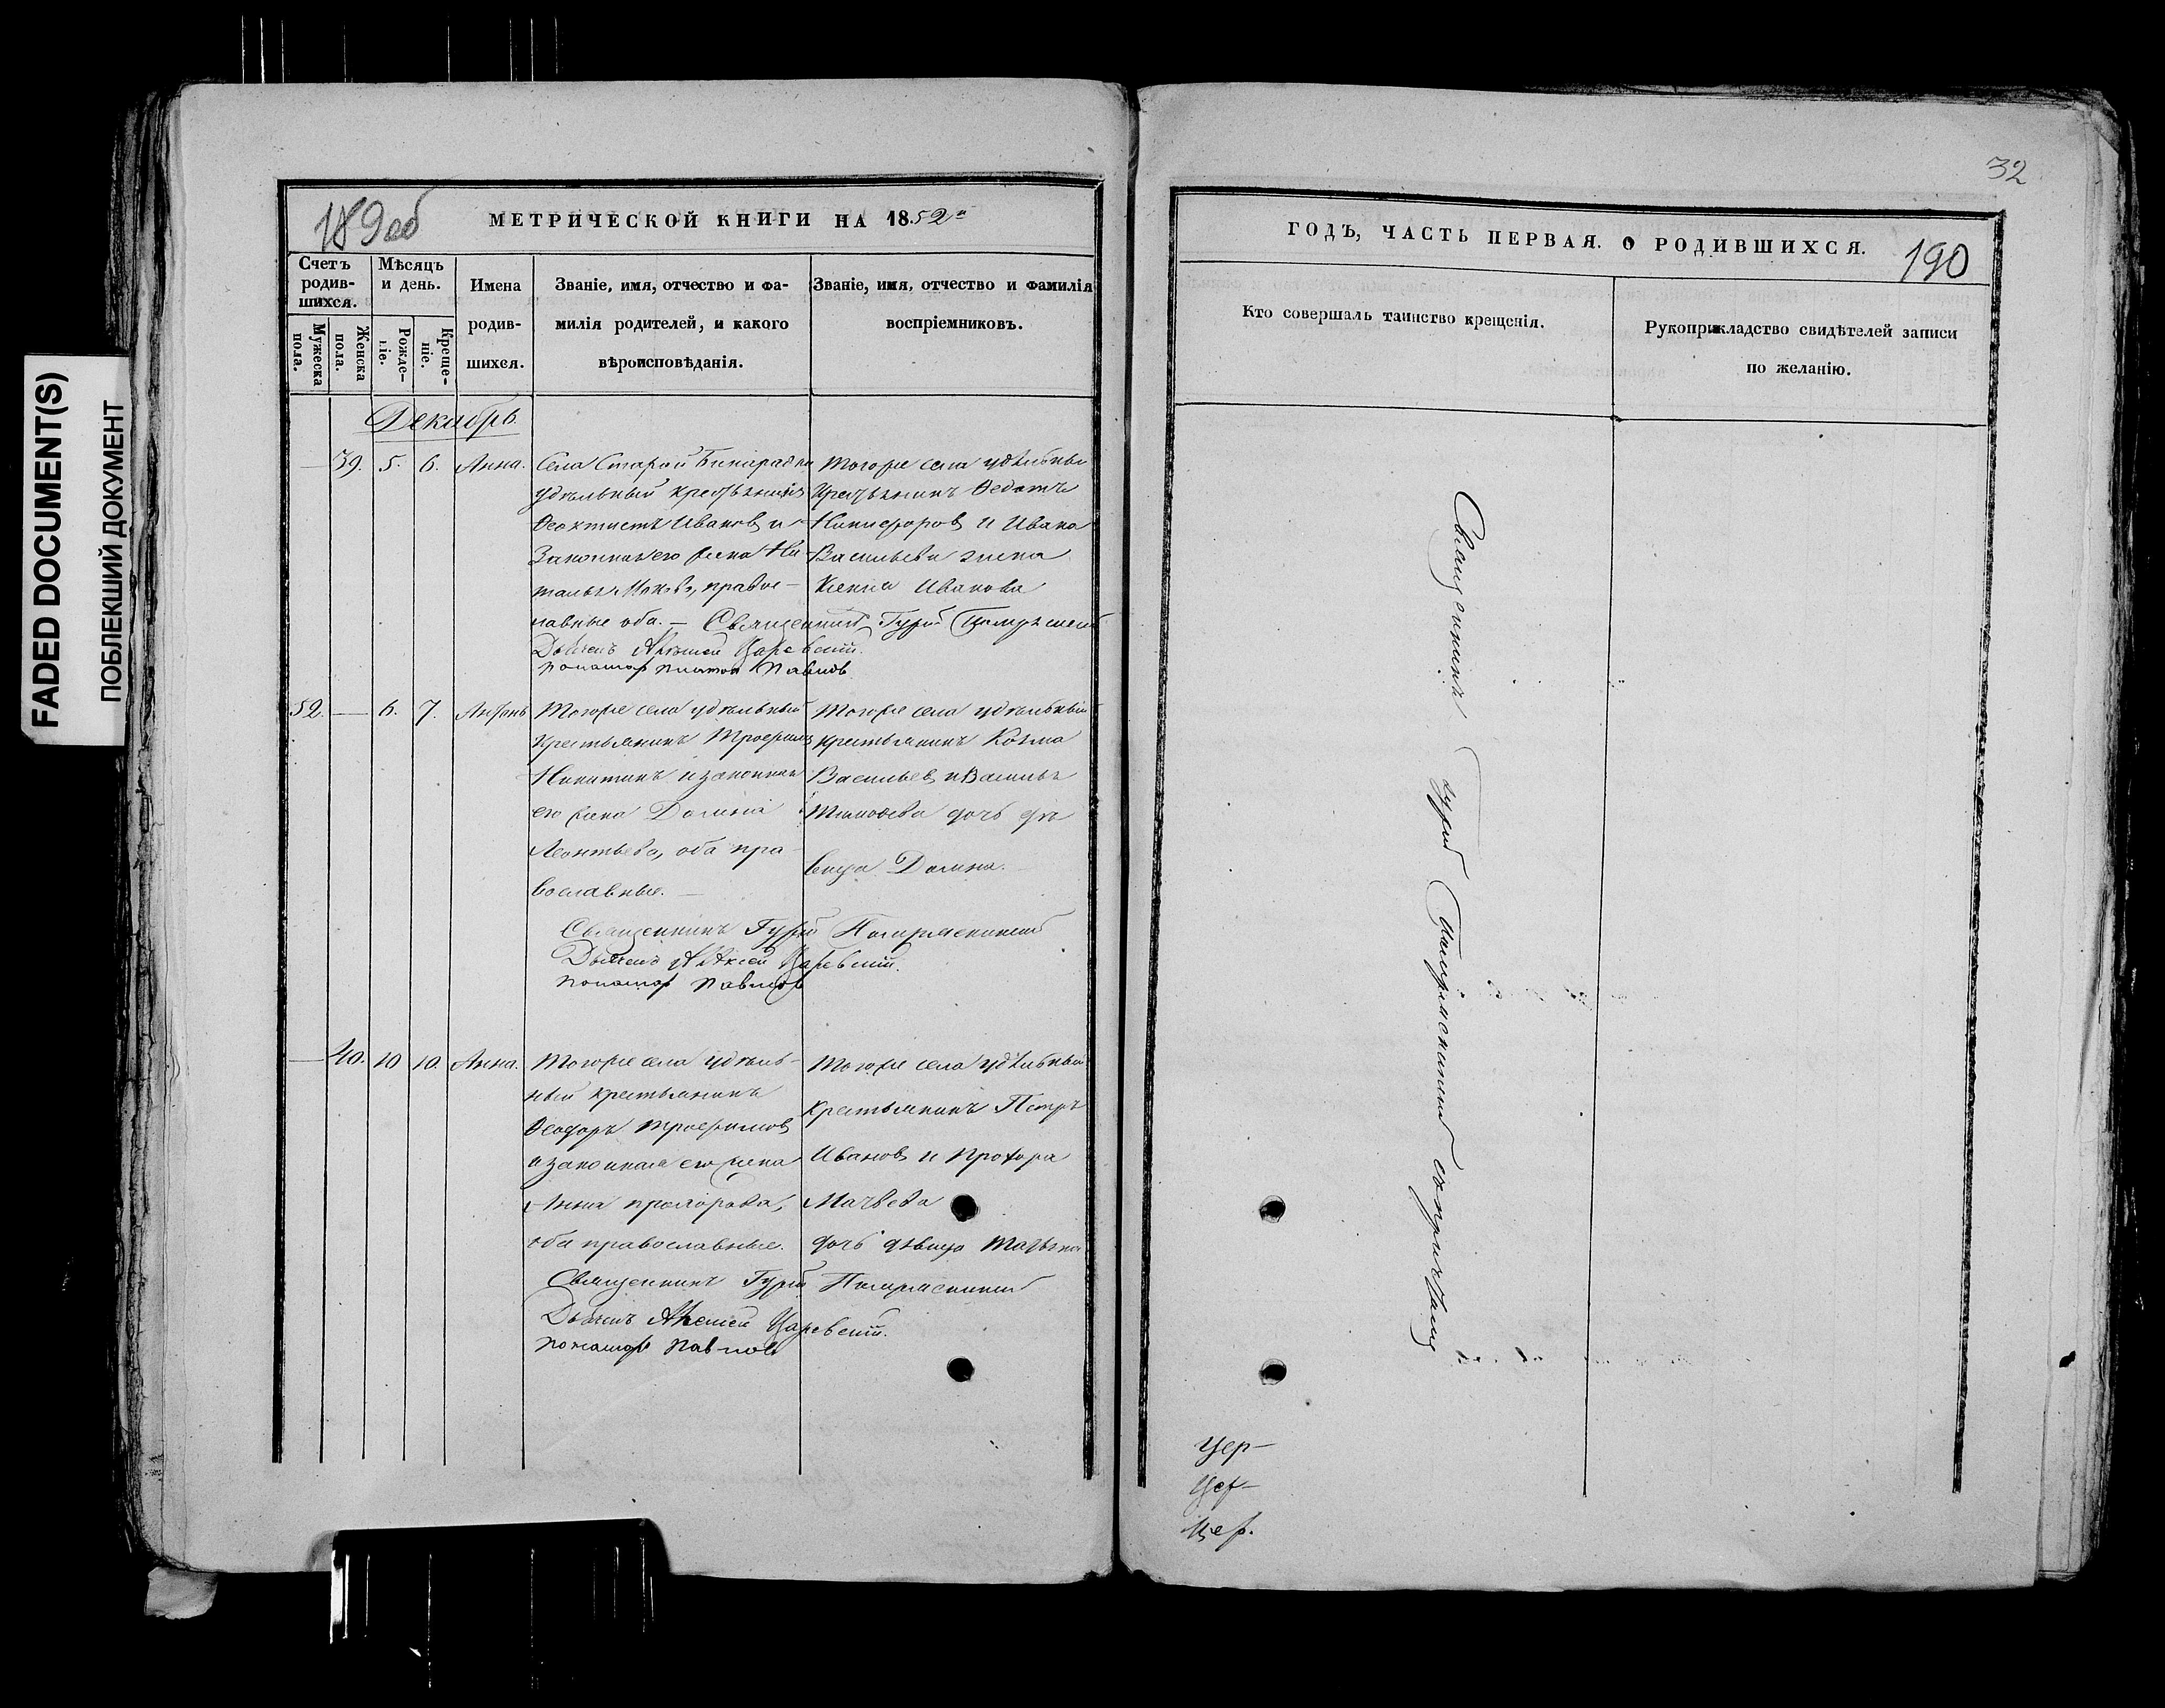 FADED DOCUMENT(S)
ПОБЛЕКШИЙ ДОКУМЕНТ
189об
МЕТРИЧЕСКОЙ КНИГИ НА 1852й
Счетъ родив-шихся.
Мѣсяцъ и день.
Имена родив-шихся.
Званіе, имя, отчество и фа-
милія родителей, и какого
вѣроисповѣданія.
Званіе, имя, отчество и фамилія
воспріемниковъ.
Мужеска пола.
Женска пола.
Рожде-ніе.
Креще-ніе.
Декабрь.
39. 5. 6. Анна.
Села Старой Бинарадки
удѣльный крестьянинъ
Феоктистъ Ивановъ и
Законная его жена На-
талья, правос-
лавные оба. —
Тогоже села удѣльный
Крестьянинъ Федотъ
Никифоровъ и Ивана
Васильева жена
Ксенія Иванова
Священникъ Гурій
Дьяконъ Алексей Царевскій.
Пономарь Платон Павлов
52. — 6. 7. Антонъ
Тогоже села удѣльный
крестьянинъ Трофимъ
Никитинъ и законная
его жена Домна
Леонтьева, оба пра-
вославные. —
Тогоже села удѣльный
крестьянинъ Козма
Васильевъ и Василья
Тимофева дочь дѣ-
вица Домна.
Священникъ Гурій
Дьяконъ Алексей Царевскій.
Пономарь Павлов
— 40. 10 10. Анна.
Тогоже села удѣль-
ный крестьянинъ
Феодоръ Трофимовъ
и законная его жена
Анна Прохорова,
оба православные.
Тогоже села удѣльный
крестьянинъ Петръ
Ивановъ и Прохора
Матвева
дочь дѣвица Татьяна
Священникъ Гурій
Дьяконъ Алексей Царевскій.
Пономарь Павлов
32
ГОДЪ, ЧАСТЬ ПЕРВАЯ. О РОДИВШИХСЯ.
190
Кто совершалъ таинство крещенія.
Рукоприкладство свидѣтелей записи
по желанію.
Священникъ Гурій съ причтомъ
Цер-
Цер-
Цер.